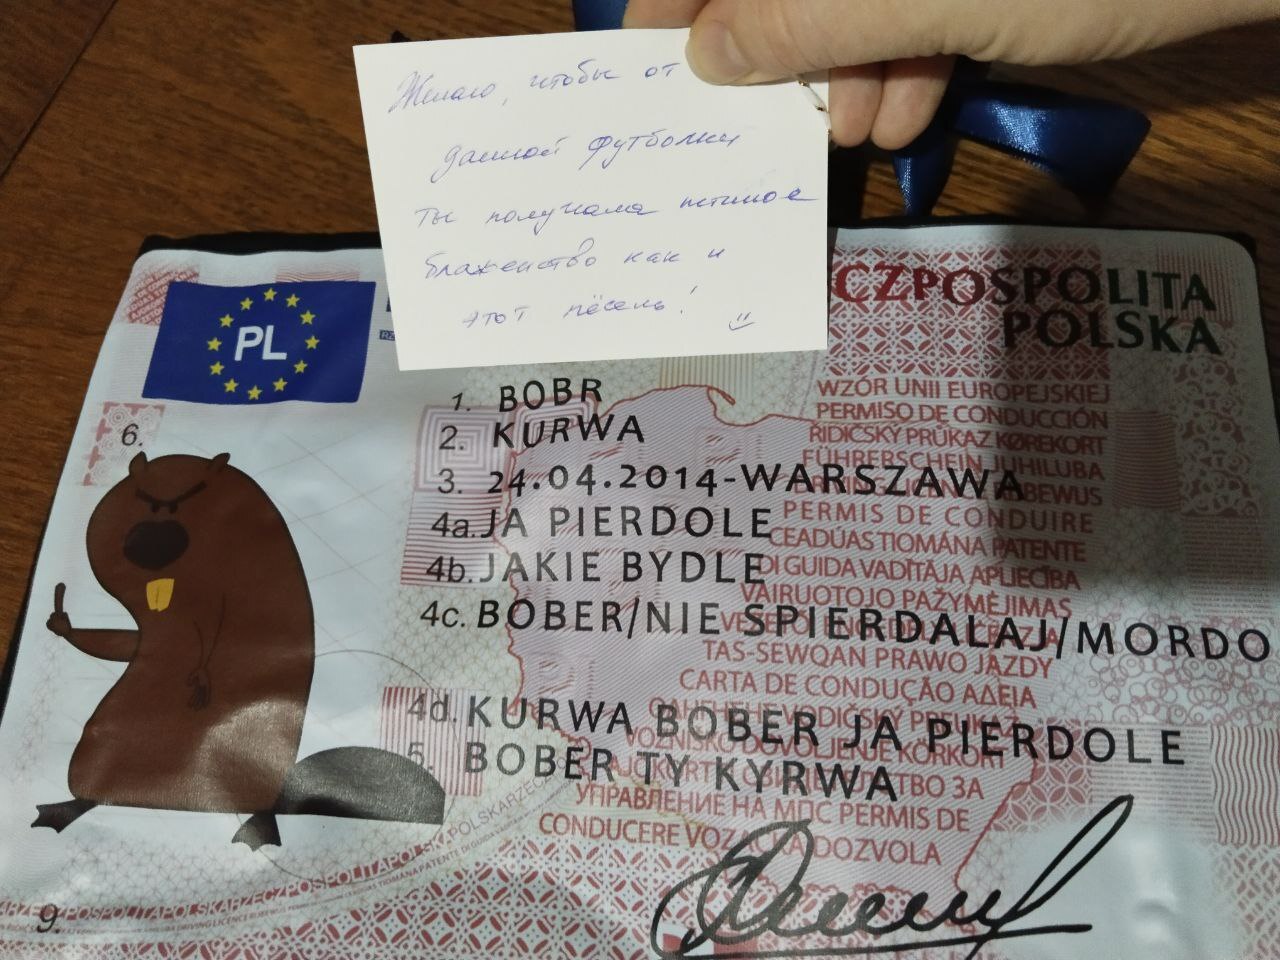 Желаю, чтобы от
данной футболки
ты получала истиное
блаженство как и
этот пёсель!
PL
CZPOSPOLITA
POLSKA
WZÓR UNII EUROPEJSKIEJ
PERMISO DE CONDUCCIÓN
RIDIČSKÝ PRŮKAZ KØREKORT
FÜHRERSCHEIN JUHILUBA
BEWIJS
PERMIS DE CONDUIRE
CEADÚAS TIOMÁNA PATENTE
DI GUIDA VADĪTĀJA APLIECĪBA
VAIRUOTOJO PAŽYMĖJIMAS
TAS-SEWQAN PRAWO JAZDY
CARTA DE CONDUÇÃO ΑΔΕΙΑ
VOZNIŠKO DOVOLJENJE KÖRKORT
УПРАВЛЕНИЕ НА МПС PERMIS DE
CONDUCERE VOZAČKA DOZVOLA
6.
1. BOBR
2. KURWA
3. 24.04.2014-WARSZAWA
4a. JA PIERDOLE
4b. JAKIE BYDLE
4c. BOBER/NIE SPIERDALAJ/MORDO
4d. KURWA BOBER JA PIERDOLE
5. BOBER TY KYRWA
9.